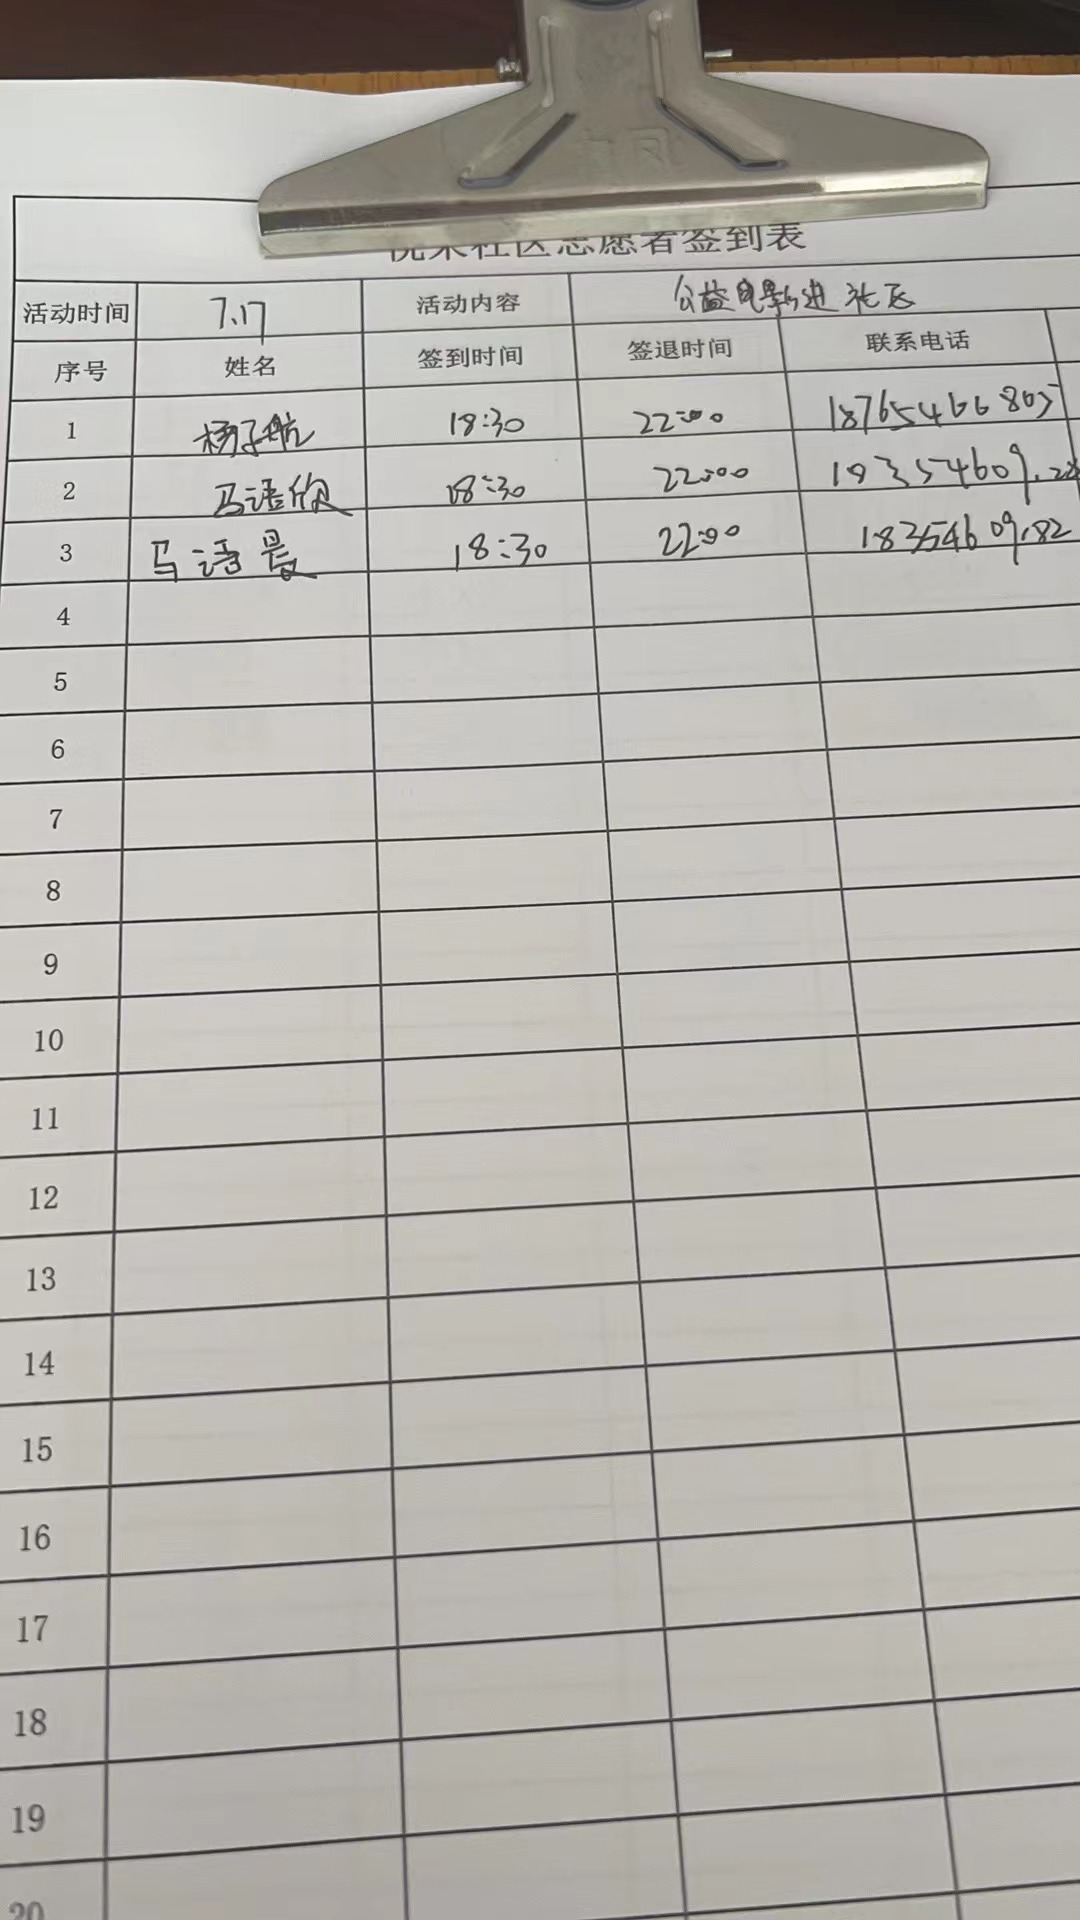 社区志愿者签到表
活动时间 7.17 活动内容 公益电影进社区
序号 姓名 签到时间 签退时间 联系电话
1 杨子航 18:30 22:00 18765466805
2 马语欣 18:30 22:00
3 马语晨 18:30 22:00 18354609182
4
5
6
7
8
9
10
11
12
13
14
15
16
17
18
19
20